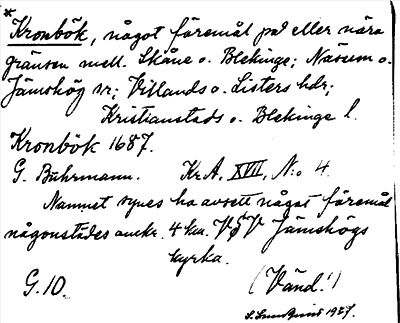 *
Kronbök, något föremål på eller nära
gränsen mell. Skåne o. Blekinge; Näsum o.
Jämshög sr; Villands o. Listers hdr;
Kristianstads o. Blekinge l.
Kronbök 1687.
G. Buhrmann. Kr.A. XVIII, N:o 4.
Namnet synes ha avsett något föremål
någonstädes omkr. 4 km. VSV Jämshögs
kyrka.
G.10. (Vänd!)
1927.